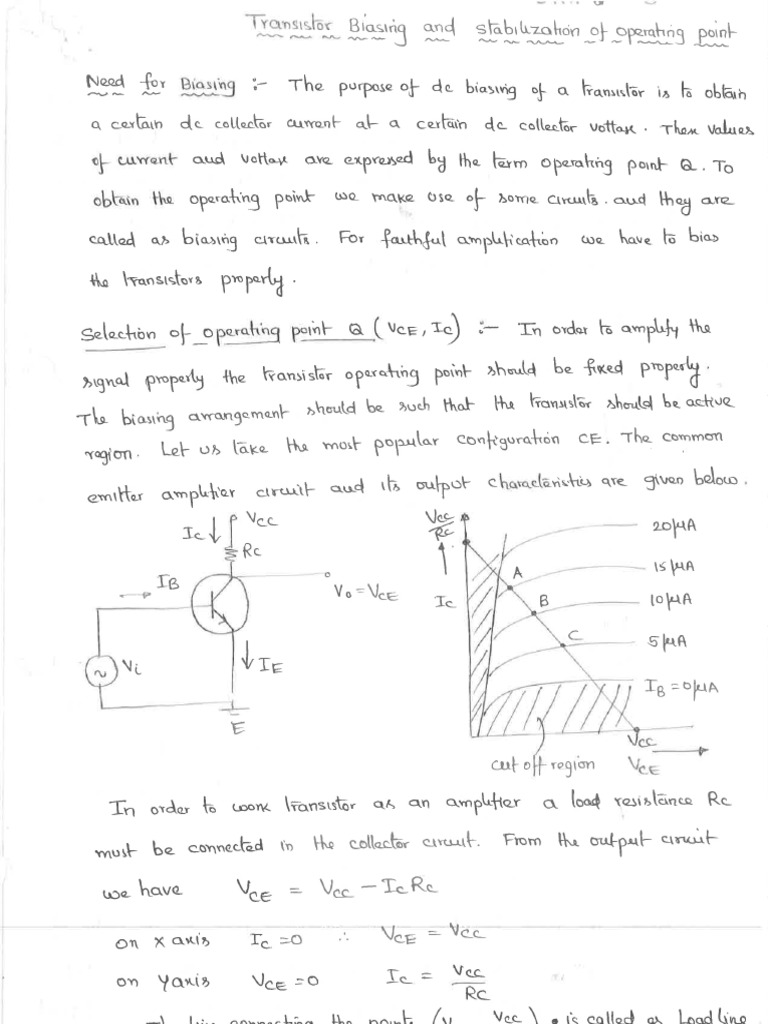 Transistor Biasing and stabilization of operating point
Need for Biasing :- The purpose of dc biasing of a transistor is to obtain
a certain dc collector current at a certain dc collector voltage. These values
of current and voltage are expressed by the term operating point Q. To
obtain the operating point we make use of some circuits. and they are
called as biasing circuits. For faithful amplification we have to bias
the transistors properly.
Selection of operating point Q (VCE, IC) :- In order to amplify the
signal properly the transistor operating point should be fixed properly.
The biasing arrangement should be such that the transistor should be active
region. Let us take the most popular configuration CE. The common
emitter amplifier circuit and its output characteristics are given below.
IC ↓ VCC
RC
IB
V0 = VCE
Vi
↓ IE
E
VCC/RC
IC
20μA
15μA
10μA
5μA
IB = 0μA
A
B
C
VCC
cut off region VCE
In order to work transistor as an amplifier a load resistance RC
must be connected in the collector circuit. From the output circuit
we have VCE = VCC - IC RC
on x axis IC = 0 ∴ VCE = VCC
on y axis VCE = 0 IC = VCC/RC
line connecting the points VCC) is called as Load line